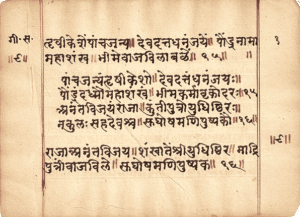 गी. स.
हृषीकेशें पांचजन्य ॥ देवदत्त धनंजयें ॥ पौंड्र नामा
महाशंख ॥ भीमें वाजविला बळें ॥ १५ ॥
पांचजन्यं हृषीकेशो ॥ देवदत्तं धनंजयः ॥
पौंड्रं दध्मौ महाशंखं ॥ भीमकर्मा वृकोदरः ॥ १५
अनंतविजयं राजा ॥ कुंतीपुत्रो युधिष्ठिरः ॥
नकुलः सहदेवश्च ॥ सुघोषमणिपुष्पकौ ॥ १६ ॥
राजा अनंतविजय ॥ शंखातें श्रीयुधिष्ठिर ॥ माद्रि
पुत्रीं वाजविले ॥ सुघोषमणिपुष्पक ॥ १६ ॥